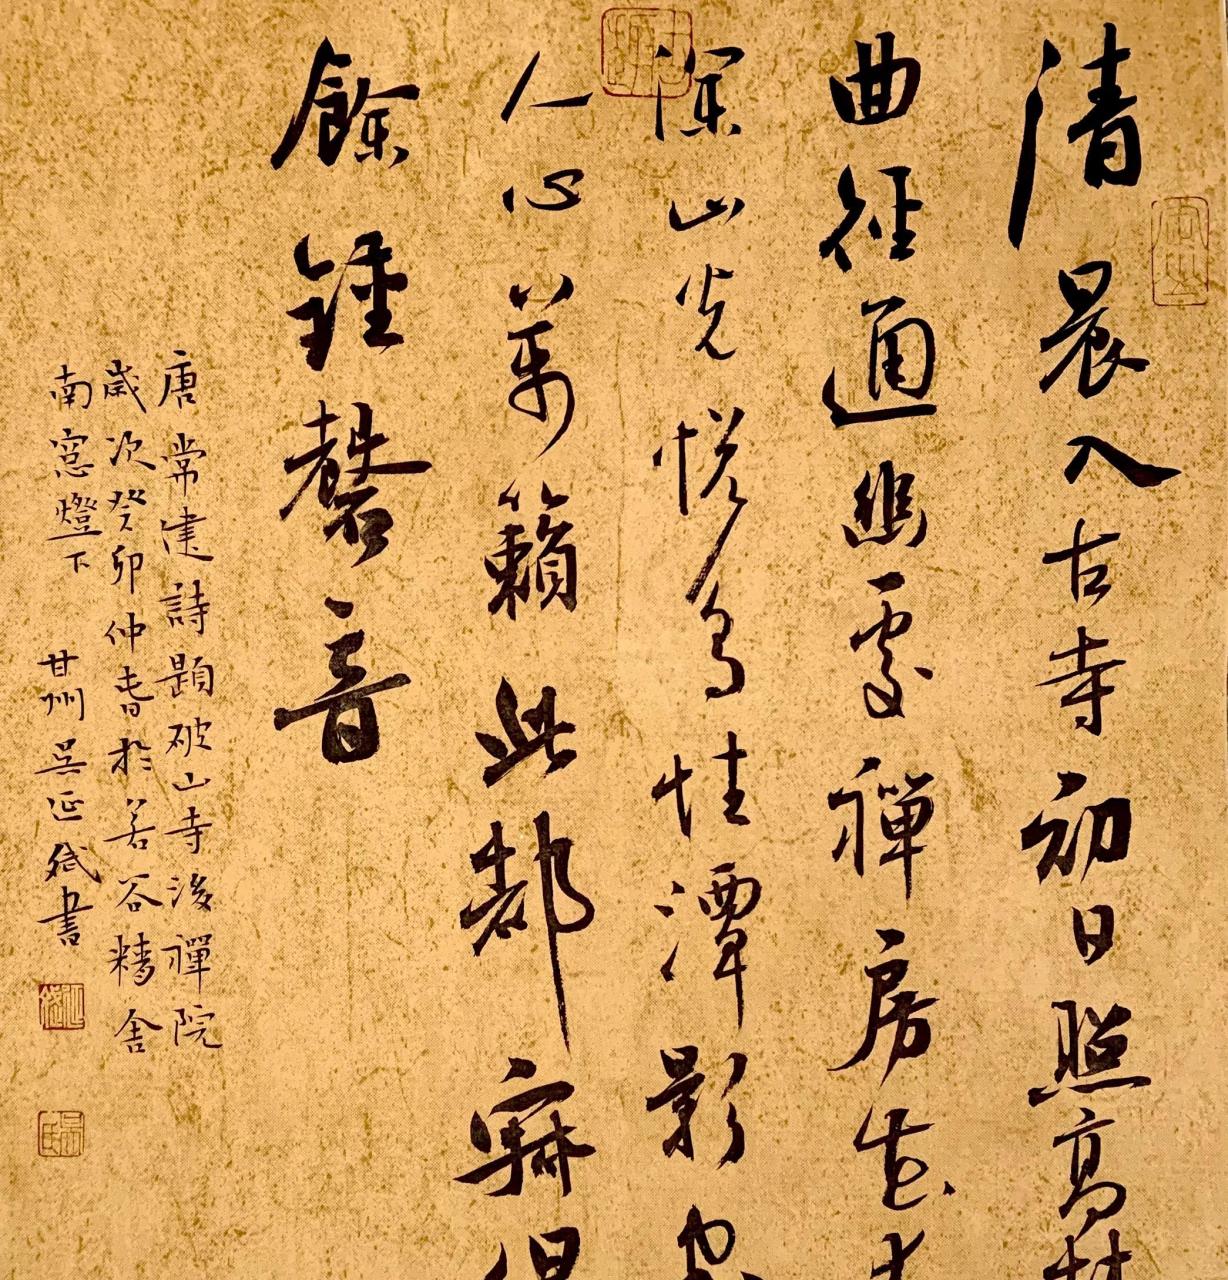 清晨入古寺初日照高林
曲徑通幽處禪房花木
深山光悅鳥性潭影空
人心萬籟此都寂但
餘鍾磬音
唐常建詩題破山寺後禪院
歲次癸卯仲春於若谷精舍
南窓燈下 甘州吳延書
吳氏